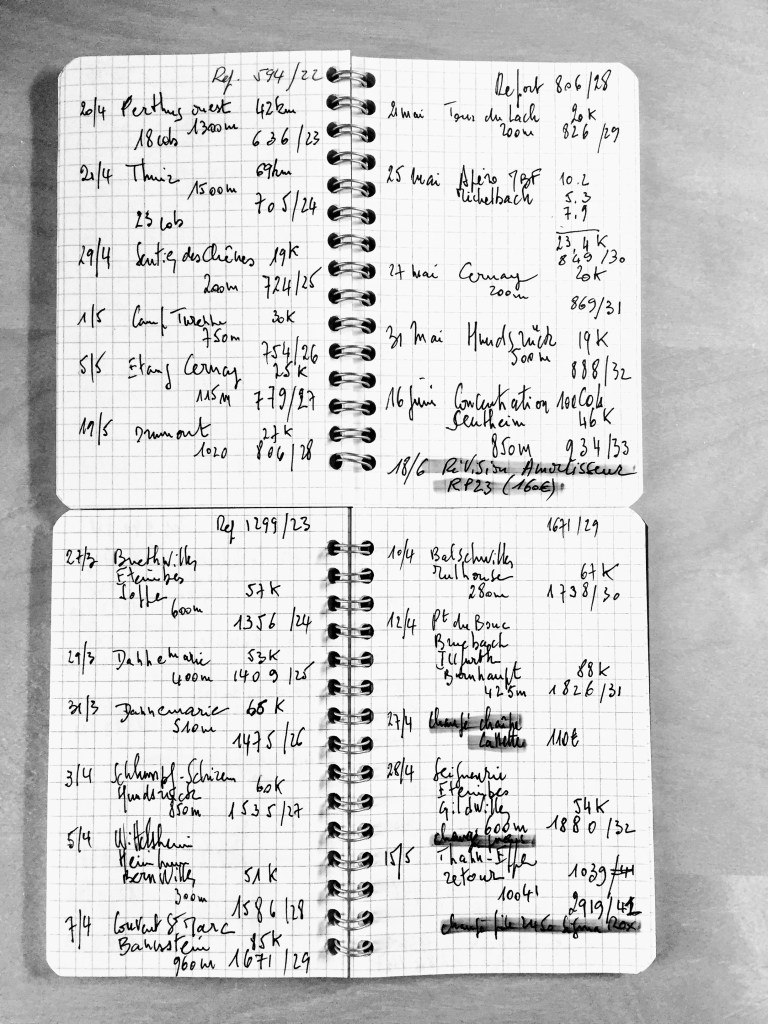 Rep. 594/22
20/4 Perthus ouest 42km
1300m
18 cols 636/23
21/4 Thuiz 69km
1500m 705/24
23 cols
29/4 Sentier des Chênes 19K
200m 724/25
1/5 Camp Turenne 30K
750m
754/26
5/5 Etang Cernay 25K
115m 779/27
19/5 Drumont 27K
1020 806/28
Report 806/28
21 mai Tour du Lach 20K
200m 826/29
25 mai Apéro 10.2
Michelbach 5.3
7,9
23,4K
849/30
27 mai Cernay 20K
200m
869/31
31 Mai Hundsrück 19K
500m
888/32
16 juin Concentration 100 Cols
Sentheim 46K
850m 934/33
18/6 Révision Amortisseur
RP23 (160€)
Rep 1299/23
27/3 Buethwiller
Eteimbes
57K
600m
1356/24
29/3 Dannemarie 53K
400m 1409/25
31/3 Dannemarie 66K
510m
1475/26
3/4 Schlumpf-
Hundsrück 60K
850m 1535/27
5/4 Wittelsheim
BernWiller 51K
300m
1586/28
7/4 Couvent St Marc
Bannstein 85K
960m 1671/29
1671/29
10/4 Balschwiller
Mulhouse 67K
280m 1738/30
12/4 Pt du Bouc
Bruebach
Illfurth
Bernhaupt 88K
425m 1826/31
27/4 changé chaîne
Cassette 110€
28/4 Seigneurie
Eteimbes
Gildwiller 54K
600m 1880/32
changé
15/5 Thann-
retour 1039/41
10041
2919/42
changé pile 2450 Sigma Rox